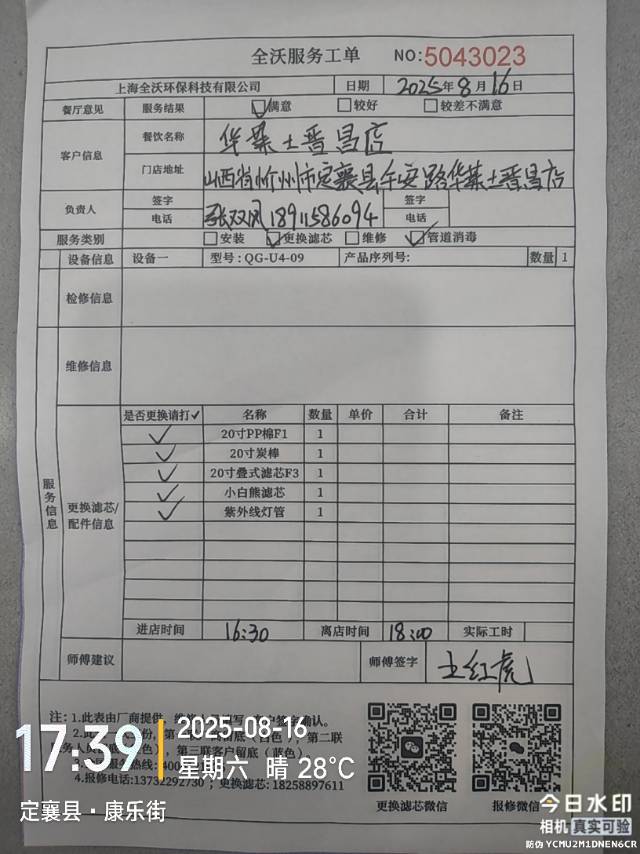 全沃服务工单 NO:5043023
上海全沃环保科技有限公司 日期 2025年8月16日
餐厅意见 服务结果 ☑满意 □较好 □较差不满意
客户信息 餐饮名称 华莱士晋昌店
门店地址 山西省忻州市定襄县平安路华莱士晋昌店
负责人 签字 电话 张双凤 18911586094 签字 电话
服务类别 □安装 ☑更换滤芯 □维修 ☑管道消毒
设备信息 设备一 型号:QG-U4-09 产品序列号: 数量 1
检修信息
维修信息
服务信息
更换滤芯/配件信息
是否更换请打✓ 名称 数量 单价 合计 备注
✓ 20寸PP棉F1 1
✓ 20寸炭棒 1
✓ 20寸叠式滤芯F3 1
✓ 小白熊滤芯 1
✓ 紫外线灯管 1
进店时间 16:30 离店时间 18:00 实际工时
师傅建议 师傅签字 王红虎
注:1.此表由厂商提供,
确认。
2.此
份,第
(白色),第二联
色),第三联客户留底(蓝色)。
服务热线:400
4.报修电话:13732292730;更换滤芯:18258897611
更换滤芯微信 报修微信
17:39 2025-08-16
星期六 晴 28°C
定襄县·康乐街
今日水印
相机 真实可验
防伪 YCMU2M1DNEN6CR